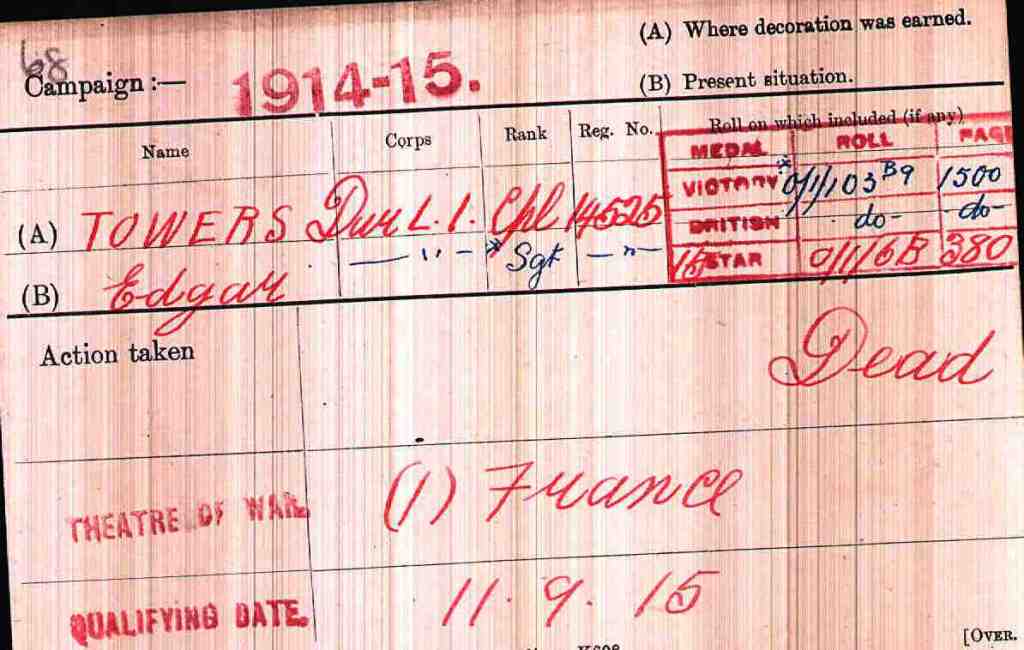 68
(A) Where decoration was earned.
Campaign :— 1914-15.
(B) Present situation.
Name Corps Rank Reg. No. Roll on which included (if any)
MEDAL ROLL PAGE
VICTORY * O/1/103 B9 1500
(A) TOWERS Dur L.I. Cpl 14525
BRITISH do- do-
— " — * Sgt — " —
15 STAR O/1/6B 380
(B) Edgar
Action taken
Dead
THEATRE OF WAR. (1) France
QUALIFYING DATE. 11. 9. 15
[OVER.